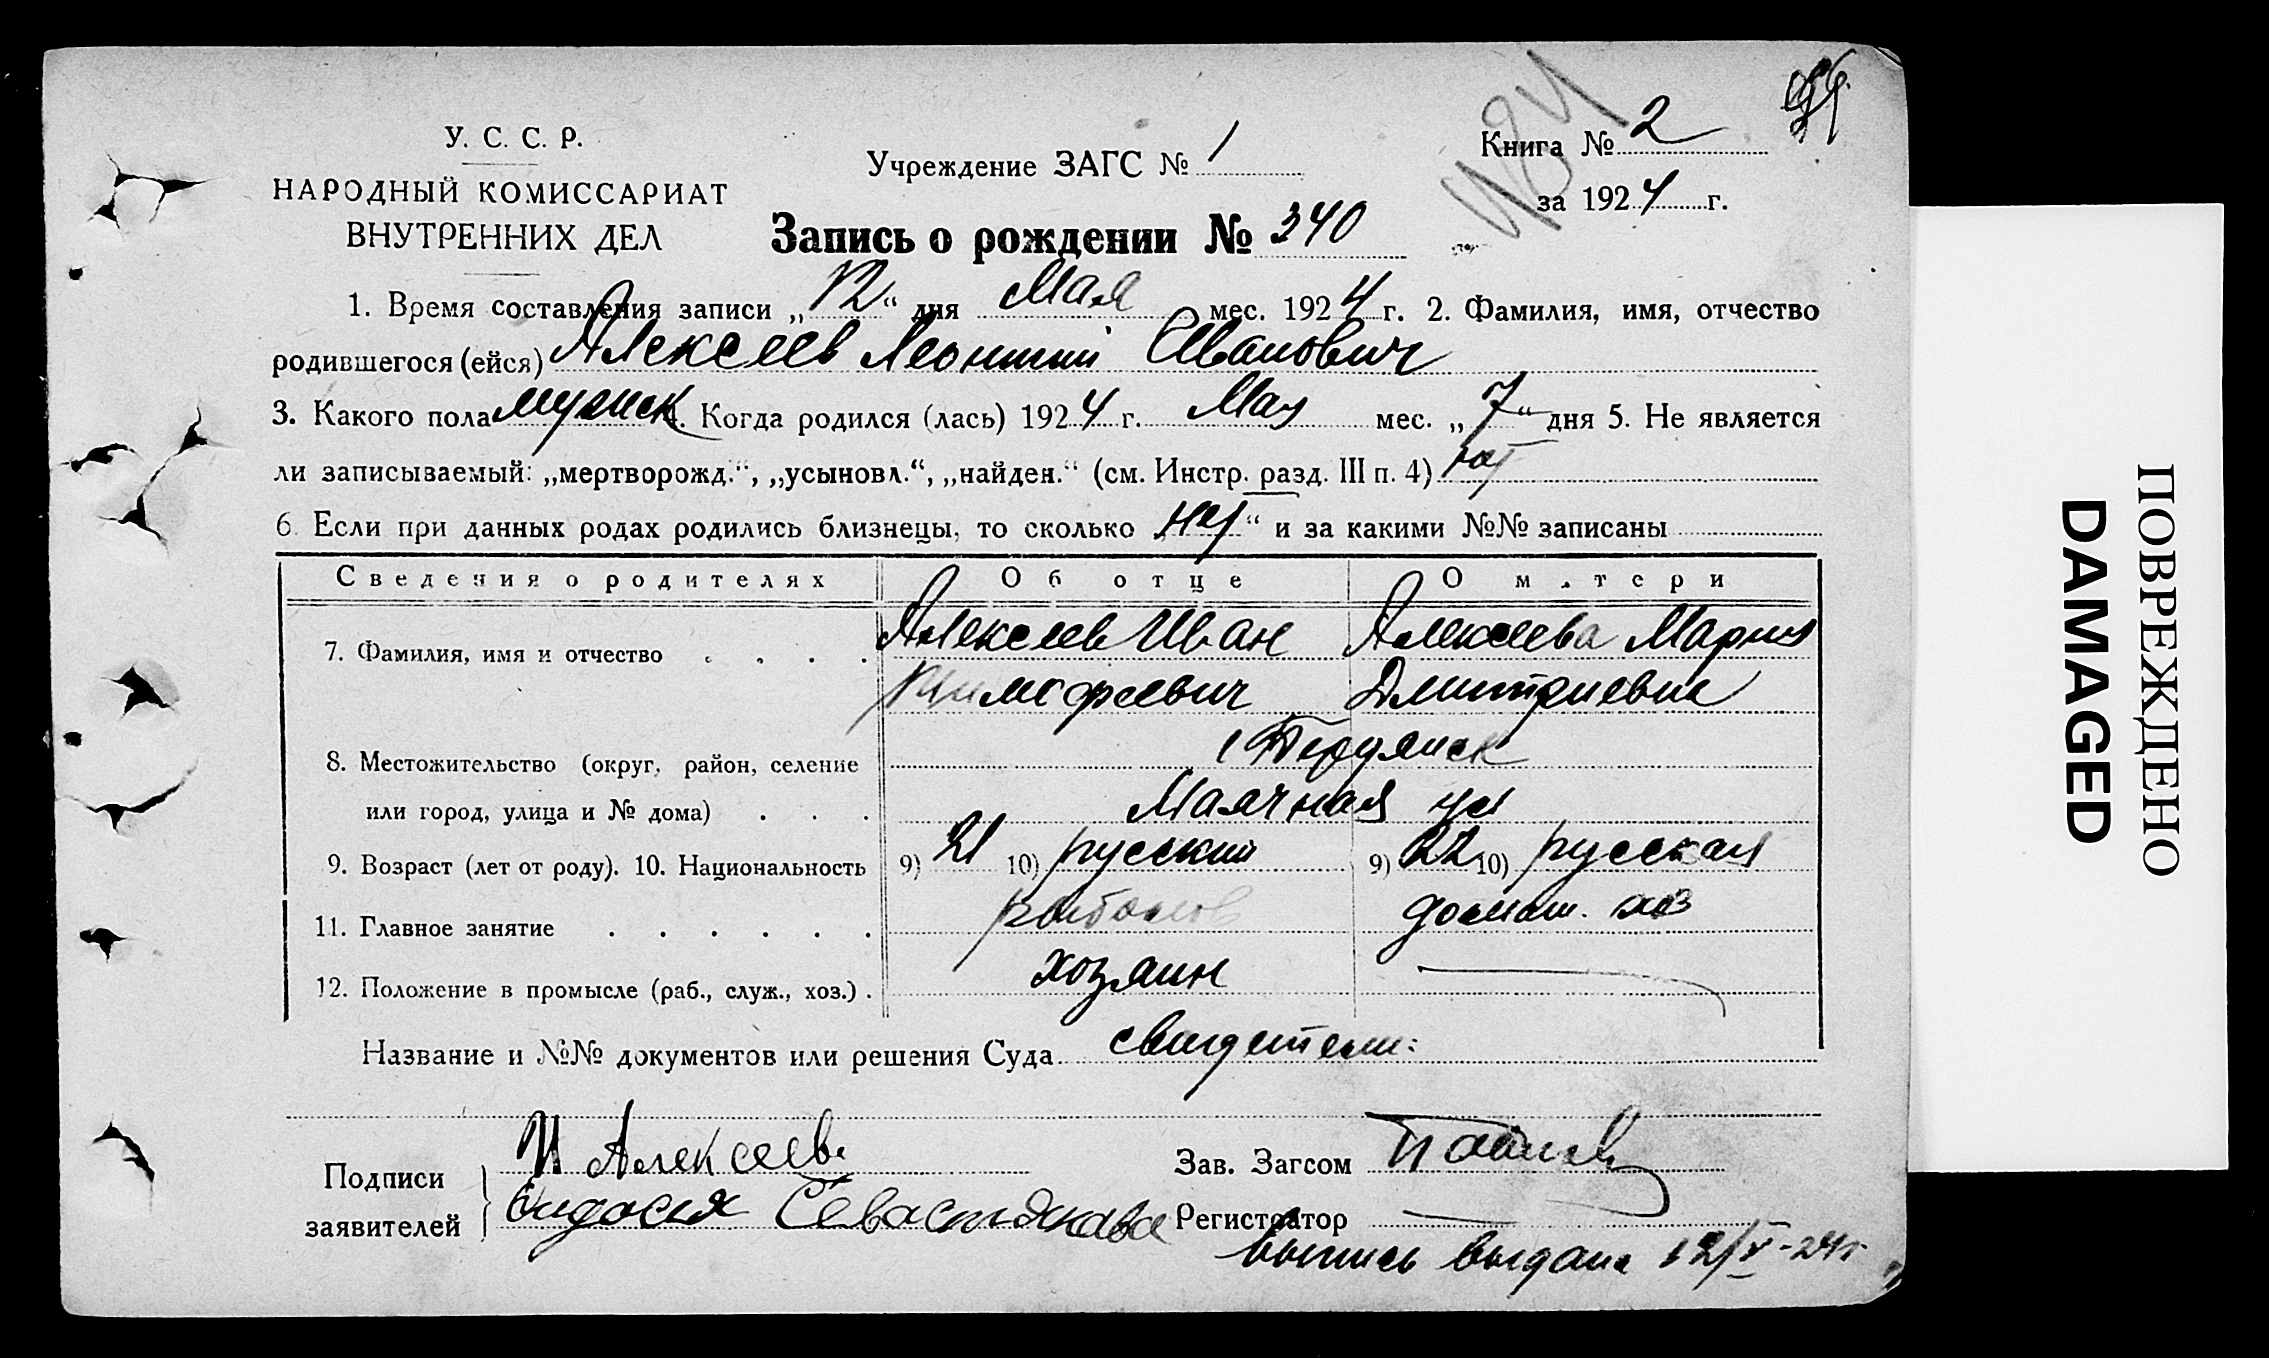 У. С. С. Р.
НАРОДНЫЙ КОМИССАРИАТ
ВНУТРЕННИХ ДЕЛ
Учреждение ЗАГС № 1
Книга № 2
за 1924 г.
Запись о рождении № 340
1. Время составления записи „12“ дня Мая мес. 1924 г. 2. Фамилия, имя, отчество
родившегося (ейся) Алексеев Леонтий Иванович
3. Какого пола мужск 4. Когда родился (лась) 1924 г. Мая мес. „7“ дня 5. Не является
ли записываемый: „мертворожд.“, „усыновл.“, „найден.“ (см. Инстр. разд. III п. 4) нет
6. Если при данных родах родились близнецы, то сколько „нет“ и за какими №№ записаны
Сведения о родителях Об отце О матери
7. Фамилия, имя и отчество . . . . Алексеев Иван Алексеева Мария
Тимофеевич Дмитриевна
8. Местожительство (округ, район, селение г Бердянск
или город, улица и № дома) . . . Маячная ул
9. Возраст (лет от роду). 10. Национальность 9) 21 10) русский 9) 22 10) русская
11. Главное занятие . . . . . . рыболов домаш. хоз
12. Положение в промысле (раб., служ., хоз.) . хозяин
Название и №№ документов или решения Суда свидетели:
Подписи
заявителей
И Алексеев
Севастянова
Зав. Загсом
Регистратор
Выпись выдана 12/V-24г
ПОВРЕЖДЕНО
DAMAGED